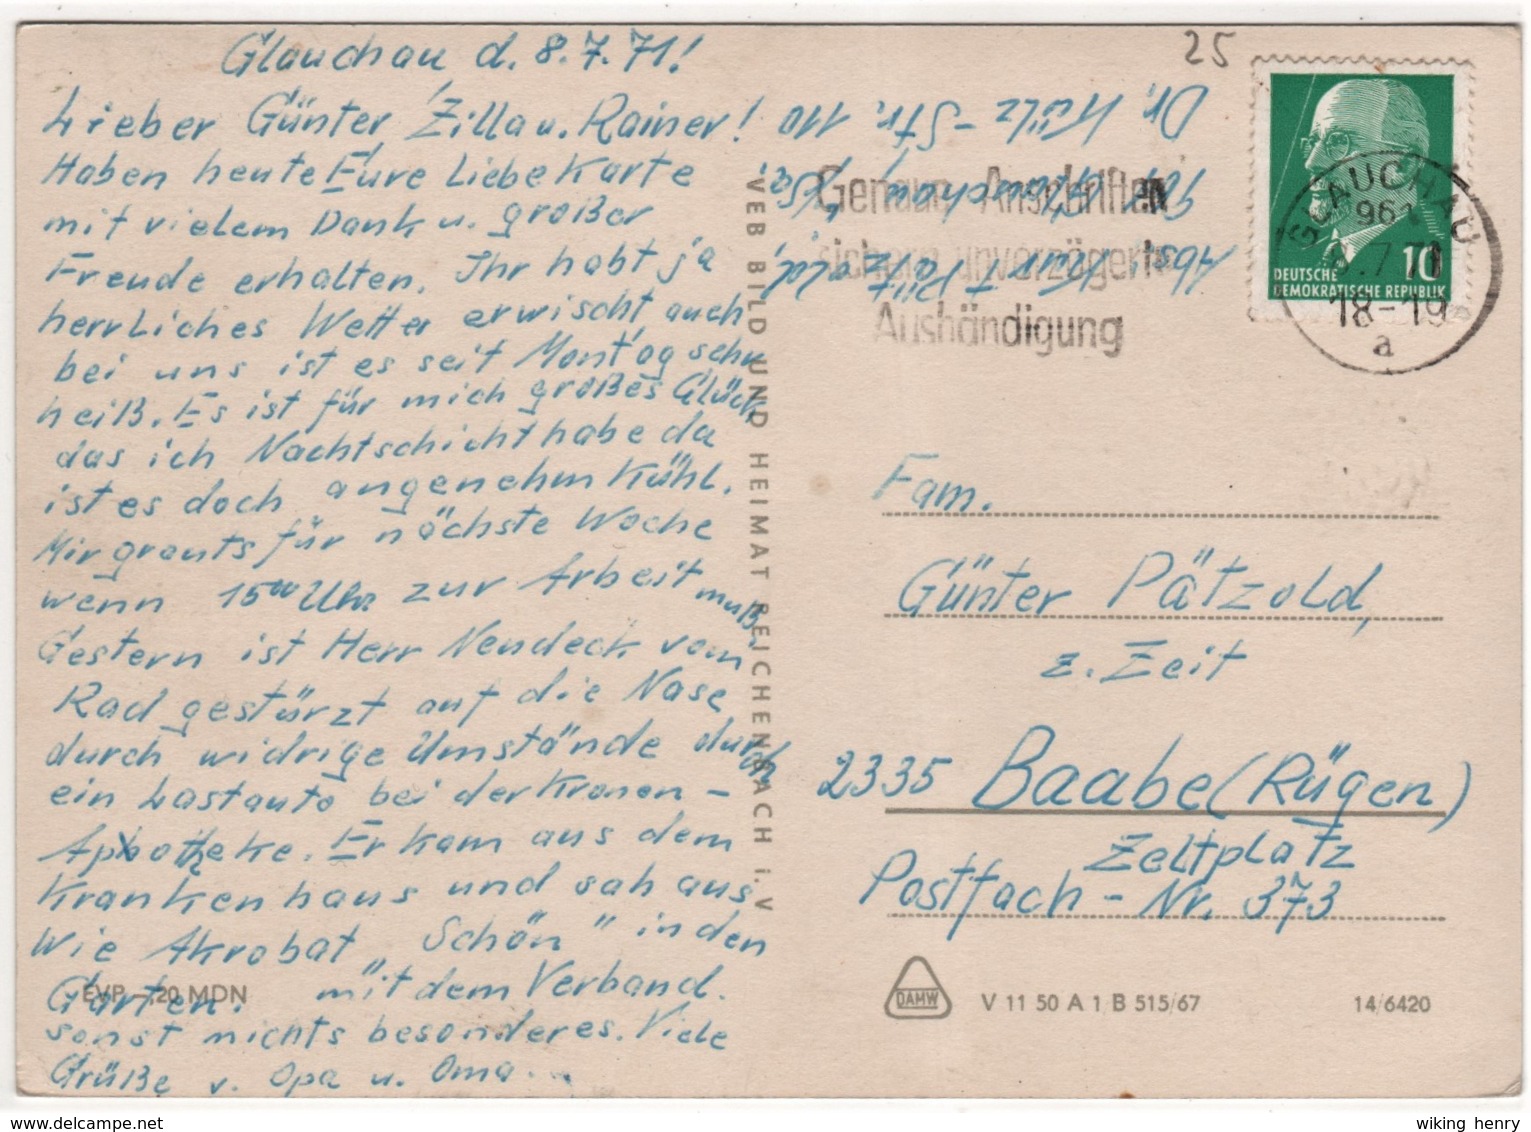 Glauchau d. 8.7.71!
Lieber Günter, Zilla u. Rainer!
Haben heute Eure Liebe Karte
mit vielem Dank u. großer
Freude erhalten. Ihr habt ja
herrliches Wetter erwischt auch
bei uns ist es seit Montag sehr
heiß. Es ist für mich großes Glück
das ich Nachtschicht habe da
ist es doch angenehm Kühl.
Mir grauts für nächste Woche
wenn 15⁰⁰ Uhr zur Arbeit muß.
Gestern ist Herr Nendeck vom
Rad gestürzt auf die Nase
durch widrige Umstände durch
ein Lastauto bei der Kronen-
Apotheke. Er kam aus dem
Krankenhaus und sah aus
Wie Akrobat „Schön" in den
Garten. mit dem Verband.
sonst nichts besonderes. Viele
Grüße v. Opa u. Oma...
EVP -.20 MDN
VEB BILD UND HEIMAT REICHENBACH i. V
25
Abs.: Kurt Pätzold,
961 Glauchau /Sa.
Dr. Külz-Str. 110
Genaue Anschriften
sichern unverzügerte
Aushändigung
DEUTSCHE 10
DEMOKRATISCHE REPUBLIK
GLAUCHAU
961
8.7.71
18-19
a
Fam.
Günter Pätzold,
z. Zeit
2335 Baabe (Rügen)
Zeltplatz
Postfach-Nr. 373
DAMW
V 11 50 A 1/B 515/67
14/6420
wiking henry